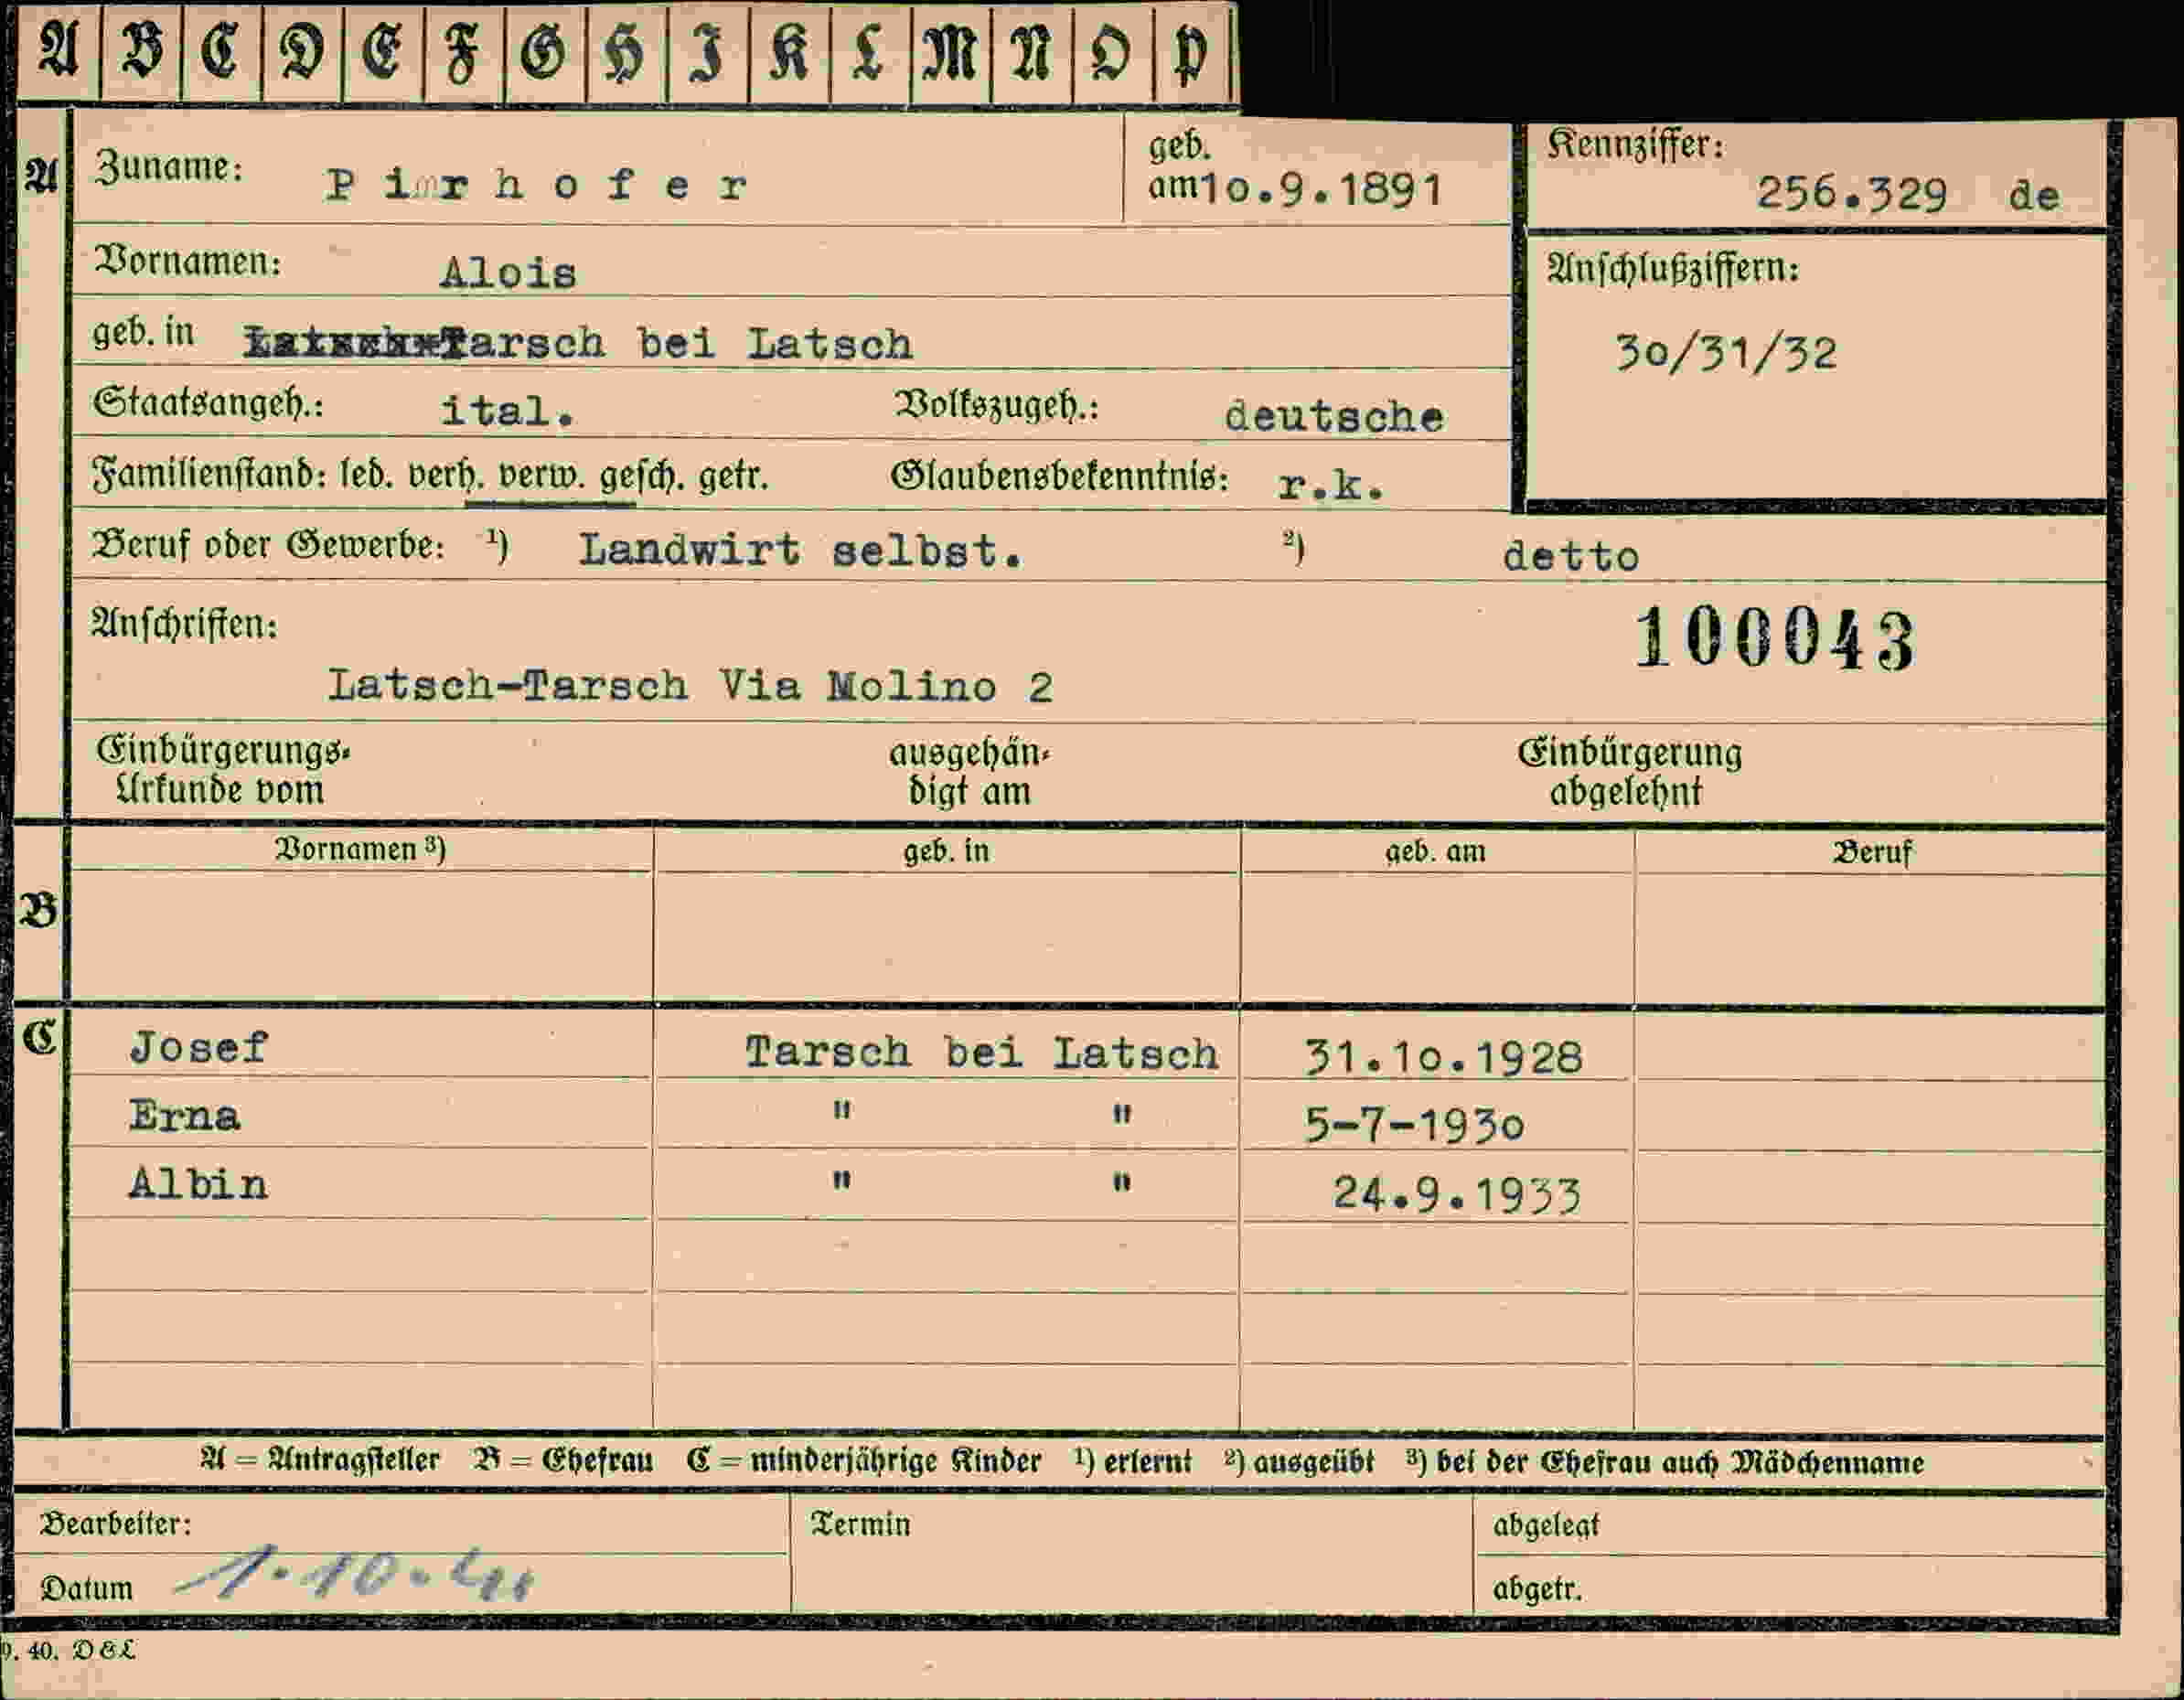 A B C D E F G H I K L M N O P
A Zuname: Pirhofer geb. am 1o.9.1891 Kennziffer: 256.329 de
Vornamen: Alois Anschlußziffern:
geb. in Tarsch bei Latsch 3o/31/32
Staatsangeh.: ital. Volkszugeh.: deutsche
Familienstand: led. verh. verw. gesch. getr. Glaubensbekenntnis: r.k.
Beruf oder Gewerbe: ¹) Landwirt selbst. ²) detto
Anschriften: 100043
Latsch-Tarsch Via Molino 2
Einbürgerungs- ausgehän- Einbürgerung
Urkunde vom digt am abgelehnt
Vornamen ³) geb. in geb. am Beruf
B
C Josef Tarsch bei Latsch 31.1o.1928
Erna " " 5-7-193o
Albin " " 24.9.1933
A = Antragsteller B = Ehefrau C = minderjährige Kinder ¹) erlernt ²) ausgeübt ³) bei der Ehefrau auch Mädchenname
Bearbeiter: Termin abgelegt
Datum 1.10. abgetr.
9. 40. D&L